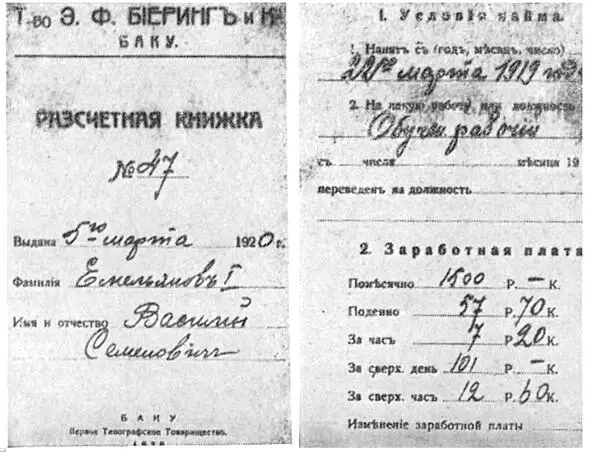 Т-во Э. Ф. БІЕРИНГЪ и К
БАКУ.
РАЗСЧЕТНАЯ КНИЖКА
№ 47
Выдана 5го марта 1920 г.
Фамилія Емельяновъ I
Имя и отчество Василій
Семеновичъ
БАКУ
Первое Типографское Товарищество.
1. Условія найма
1. Нанятъ съ (годъ, мѣсяцъ, число)
22го марта 1919 года
2. На какую работу или должность
рабочій
съ числа мѣсяца 19
переведенъ на должность
2. Заработная плата
Помѣсячно 1500 Р. — К.
Поденно 57 Р. 70 К.
За часъ 7 Р. 20 К.
За сверх. день 101 Р. — К.
За сверх. часъ 12 Р. 60 К.
Измѣненіе заработной платы